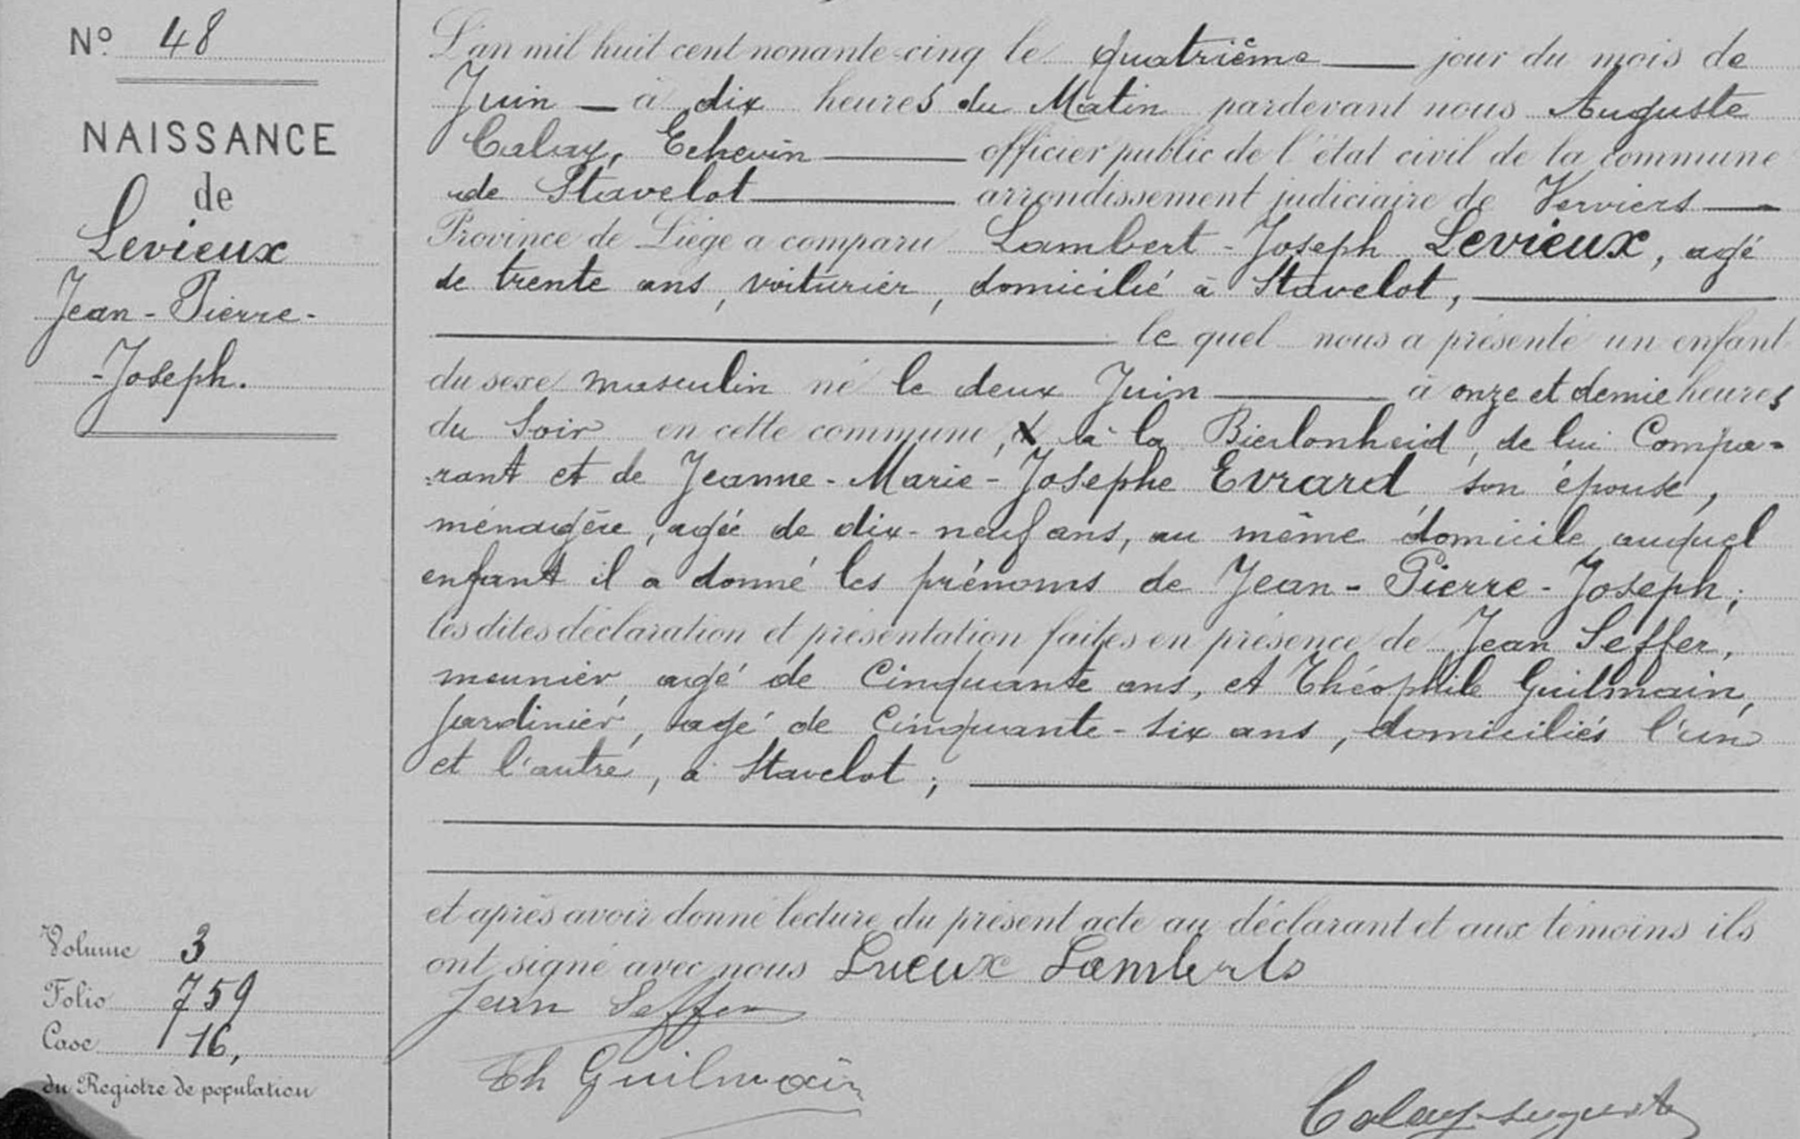 No. 48
NAISSANCE
de
Levieux
Jean-Pierre-
-Joseph.
L'an mil huit cent nonante-cinq le quatrième jour du mois de
Juin à dix heures du Matin pardevant nous Auguste
Calay, Echevin officier public de l'état civil de la commune
de Stavelot arrondissement judiciaire de Verviers
Province de Liége a comparu Lambert-Joseph Levieux, agé
de trente ans, voiturier, domicilié à Stavelot,
le quel nous a présenté un enfant
du sexe masculin né le deux Juin à onze et demie heures
du Soir en cette commune, à la Bierlonheid, de lui Compa-
rant et de Jeanne-Marie-Josephe Evrard son épouse,
ménagère, agée de dix-neuf ans, au même domicile auquel
enfant il a donné les prénoms de Jean-Pierre-Joseph;
les dites déclaration et présentation faites en présence de Jean Seffer,
meunier, agé de Cinquante ans, et Théophile Guilmain,
jardinier, agé de Cinquante-six ans, domiciliés l'un
et l'autre, à Stavelot;
et après avoir donné lecture du présent acte au déclarant et aux témoins ils
ont signé avec nous Lveux Lamberts
Jean Seffer
Th Guilmain
Calay
Volume 3
Folio 759
Case 16,
du Registre de population